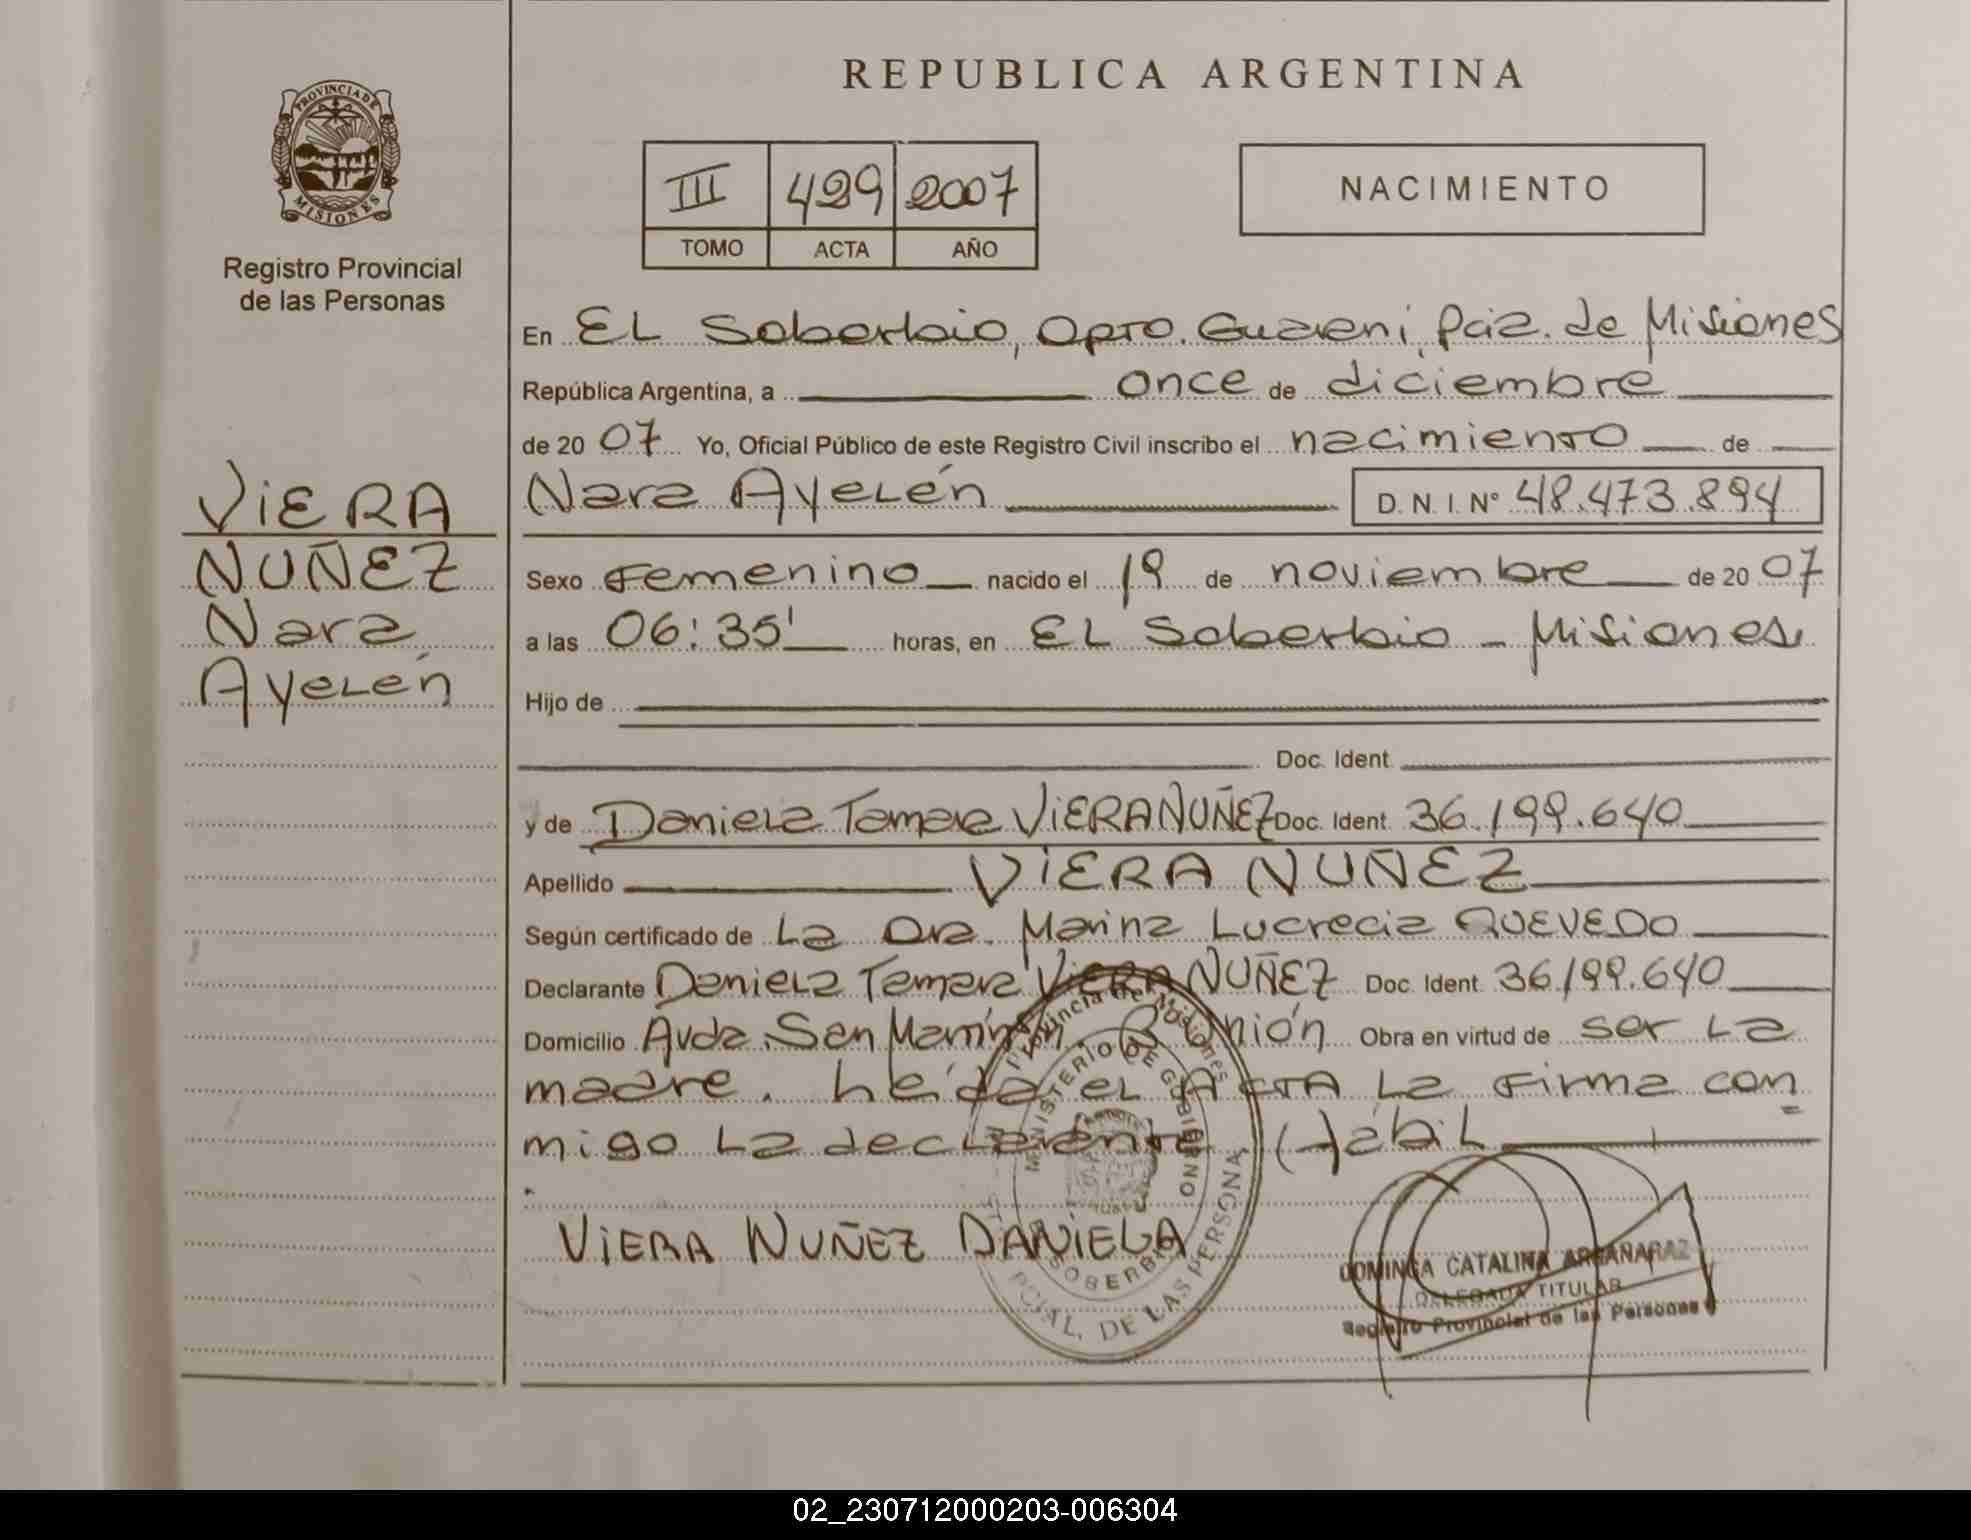 REPUBLICA ARGENTINA
PROVINCIA DE MISIONES
Registro Provincial
de las Personas
III 429 2007
TOMO ACTA AÑO
NACIMIENTO
VIERA
NUÑEZ
Nara
Ayelén
En EL Soberbio, Dpto. Guaraní, Pcia. de Misiones
República Argentina, a once de diciembre
de 2007 Yo, Oficial Público de este Registro Civil inscribo el nacimiento de
Nara Ayelén D. N. I. Nº 48.473.894
Sexo Femenino nacido el 19 de noviembre de 2007
a las 06:35' horas, en EL Soberbio - Misiones
Hijo de
Doc. Ident.
y de Daniela Tamara VIERA NUÑEZ Doc. Ident. 36.199.640
Apellido VIERA NUÑEZ
Según certificado de La Dra. Marina Lucrecia QUEVEDO
Declarante Daniela Tamara VIERA NUÑEZ Doc. Ident. 36.199.640
Domicilio Avda. San Martín. B° Unión Obra en virtud de ser La
madre. Leída el ACTA La firma con
migo La declarante. Hábil
VIERA NUÑEZ DANIELA
Provincia de Misiones
MINISTERIO DE GOBIERNO
SOBERBIO
PCIAL. DE LAS PERSONA
DOMINGA CATALINA ARGAÑARAZ
DELEGADA TITULAR
Registro Provincial de las Personas
02_230712000203-006304